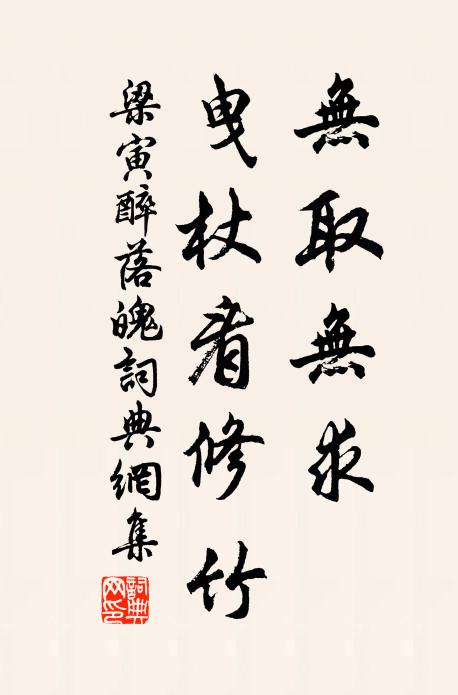 無取無求
曳杖看修竹
梁寅醉落魄詞典網集
詞典網印